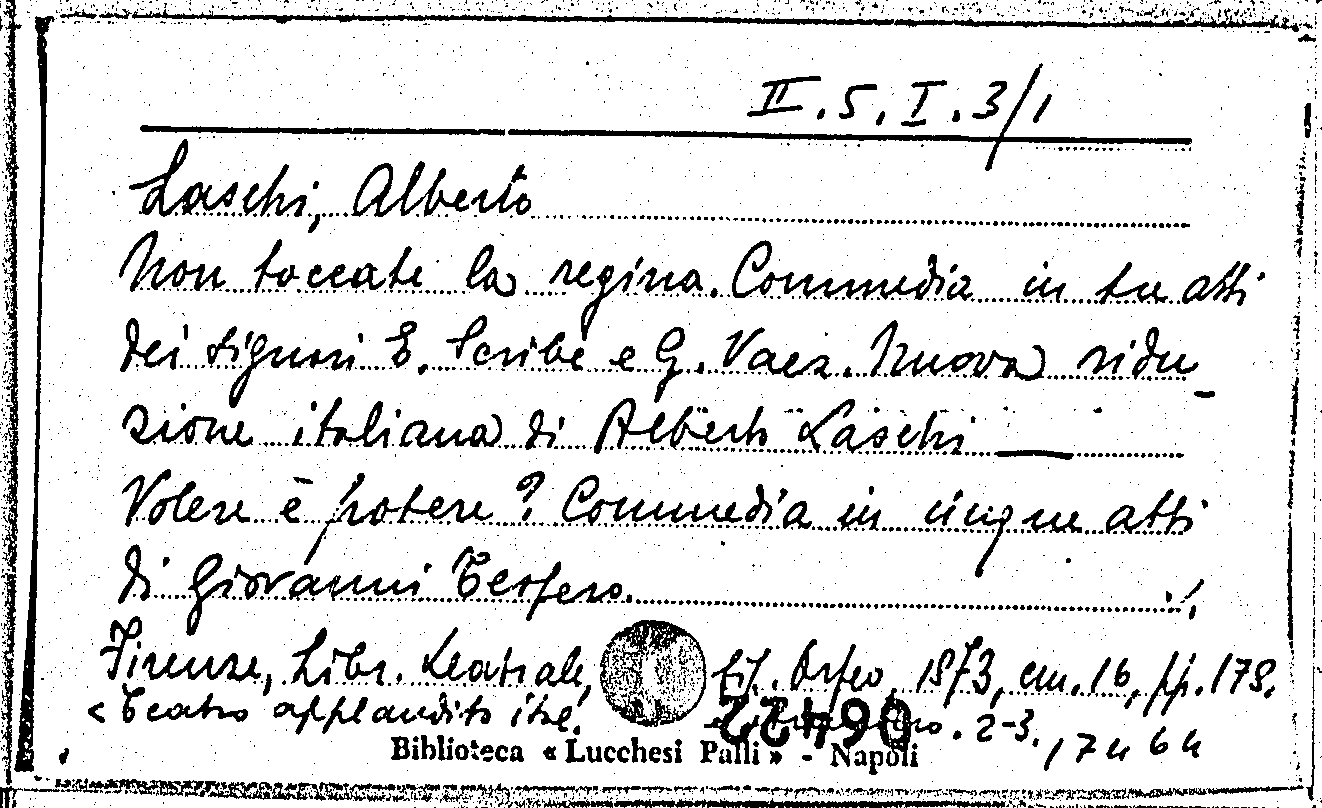 II.5.I.3/1
Laschi, Alberto
Non toccate la regina. Commedia in tre atti
dei signori E. Scribe e G. Vaez. Nuova ridu-
zione italiana di Alberto Laschi —
Volere è potere? Commedia in cinque atti
di Giovanni ./.
Firenze, Libr. teatrale, tip. Orfeo, 1873, cm. 16, pp. 178.
«Teatro applaudito 2-3.
06422
17464
Biblioteca « Lucchesi Palli » - Napoli